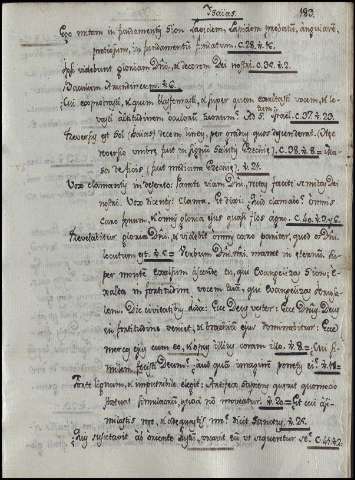 Isaias. 183.
Ego mittam in fundamentis Sion Lapidem, Lapidem probatum, angularem,
pretiosum, in fundamento fundatum. C.28. v.16.
Ipsi videbunt gloriam Dñi, et decorem Dei nostri. C.35. v.2.
v.6.
Cui exprobrasti, et quem blasphemasti, et super quem exaltasti vocem, et le-
vasti altitudinem oculorum tuorum? Ad S. Israel. C.37. v.23.
Reversus est Sol decem lineis, per gradus quos descenderat.
umbræ fuit in signum C.38. v.8.
v.21.
Vox clamantis in deserto: Parate viam Dñi, rectas facite semitas Dei
nostri. Vox dicentis: Clama. Et dixi: Quid clamabo? omnis
caro fenum, et omnis gloria ejus quasi flos agri. C.40. v.3. et 6.
Revelabitur gloria Dñi, et videbit omnis caro pariter, quod os Dñi
locutum est. v.5. Verbum Dñi manet in æternum. Su-
per montem excelsum ascende tu, qui evangelizas Sion; ex-
alta in fortitudine vocem tuam, qui evangelizas Jerusa-
lem. Dic civitatibus Juda: Ecce Deus vester: Ecce Dñus Deus
in fortitudine veniet, et brachium ejus dominabitur: Ecce
merces ejus cum eo, et opus illius coram illo. v.8. Cui si-
milem fecistis Deum? aut quam imaginem ponetis ei? v.18.
Forte lignum, et imputribile elegit: Artifex sapiens quærit quomodo
statuat simulacrum, quod non moveatur. v.20. Et cui assi-
milastis me, et adæquastis me? dicit Sanctus. v.25.
Quis suscitavit ab oriente Justum, vocavit eum ut sequeretur se? C.41. v.2.